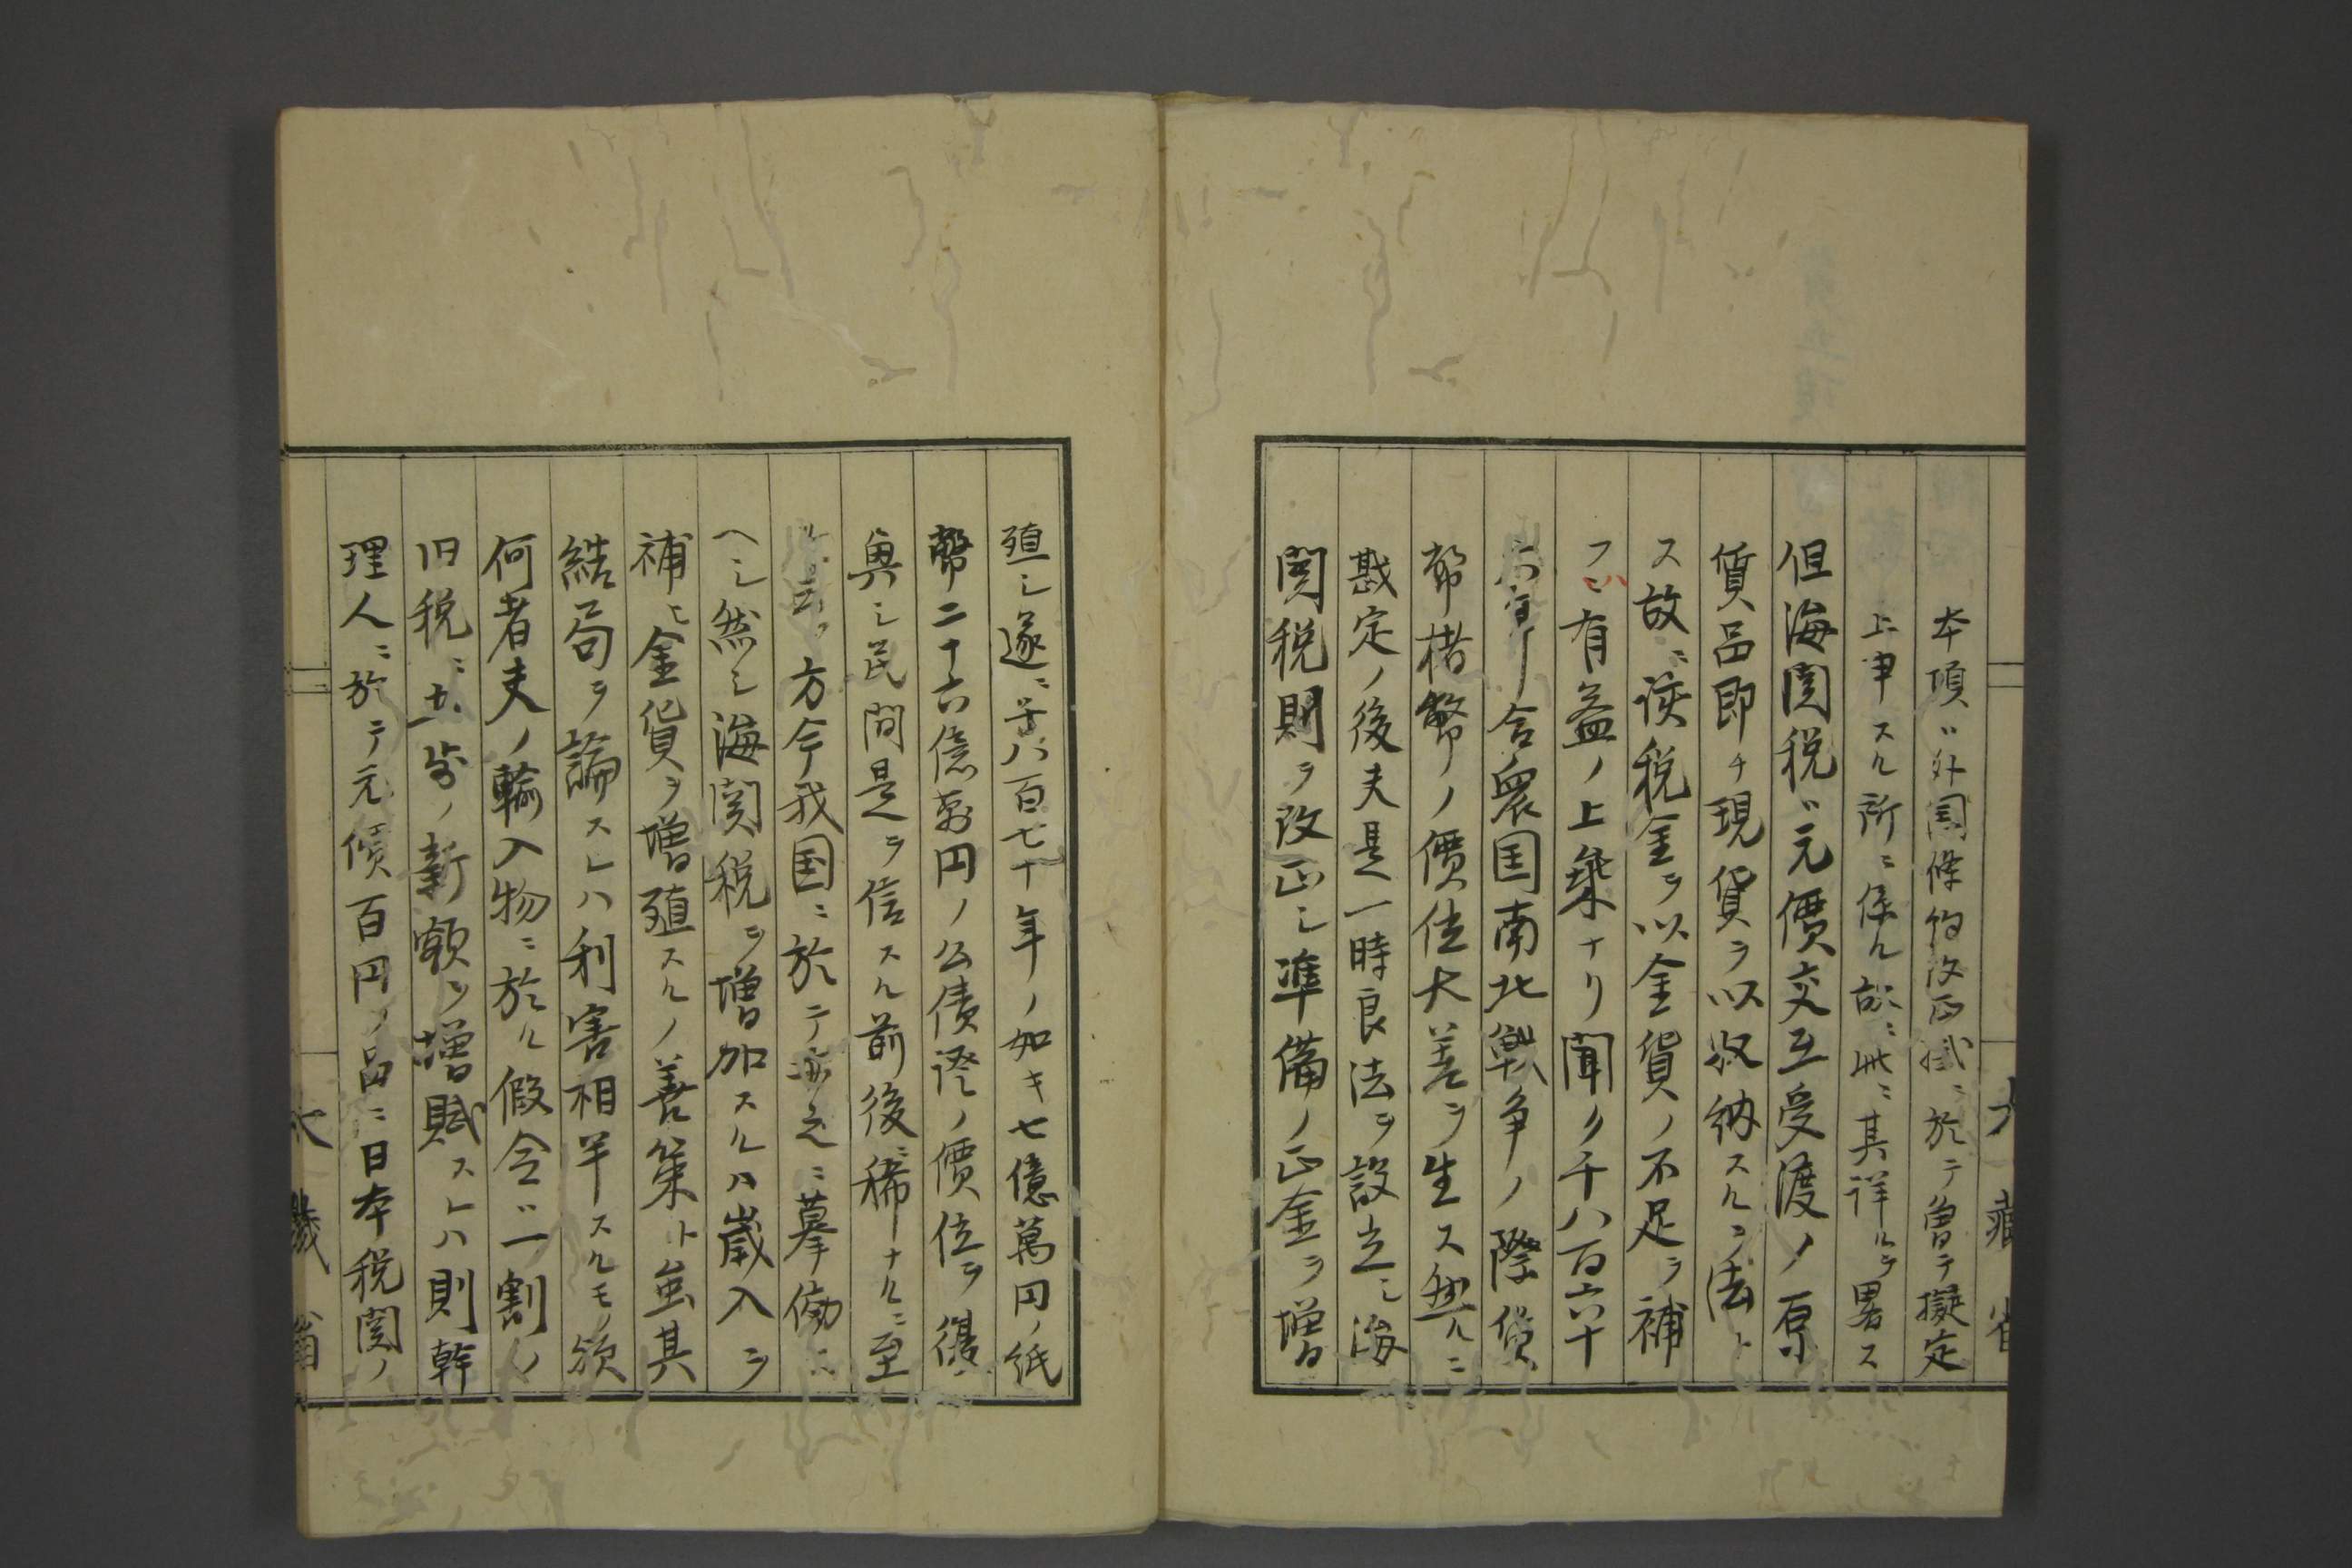 本項ハ外国條約改正掛ニ於テ曾テ擬定
上申スル所ニ係ル故ニ此ニ其詳ヲ畧ス
但海関税ハ元價交互受渡ノ原
質品即チ現貨ヲ以収納スルヲ法ト
ス故ニ該税金ヲ以金貨ノ不足ヲ補
フハ有益ノ上策ナリ聞ク千八百六十
合衆国南北戦争ノ際貨
幣楮幣ノ價位大差ヲ生ス然ルニ
戡定ノ後夫是一時良法ヲ設立シ海
関税則ヲ改正シ準備ノ正金ヲ増
大蔵省
殖シ遂ニ千八百七十年ノ如キ七億萬円ノ紙
幣二十六億萬円ノ公債證ノ價位ヲ復
興シ民間是ヲ信スル前後ニ稀ナルニ至
ル云々方今我国ニ於テ亦之ニ摹倣ス
ヘシ然シ海関税ヲ増加スルハ歳入ヲ
補ヒ金貨ヲ増殖スルノ善策ト虽其
結局ヲ論スレハ利害相半スルモノ歟
何者夫ノ輸入物ニ於ル假令ハ一割ノ
旧税ニ五歩ノ新額ヲ増賦スレハ則幹
理人ニ於テ元價百円ノ品ニ日本税関ノ
大蔵省